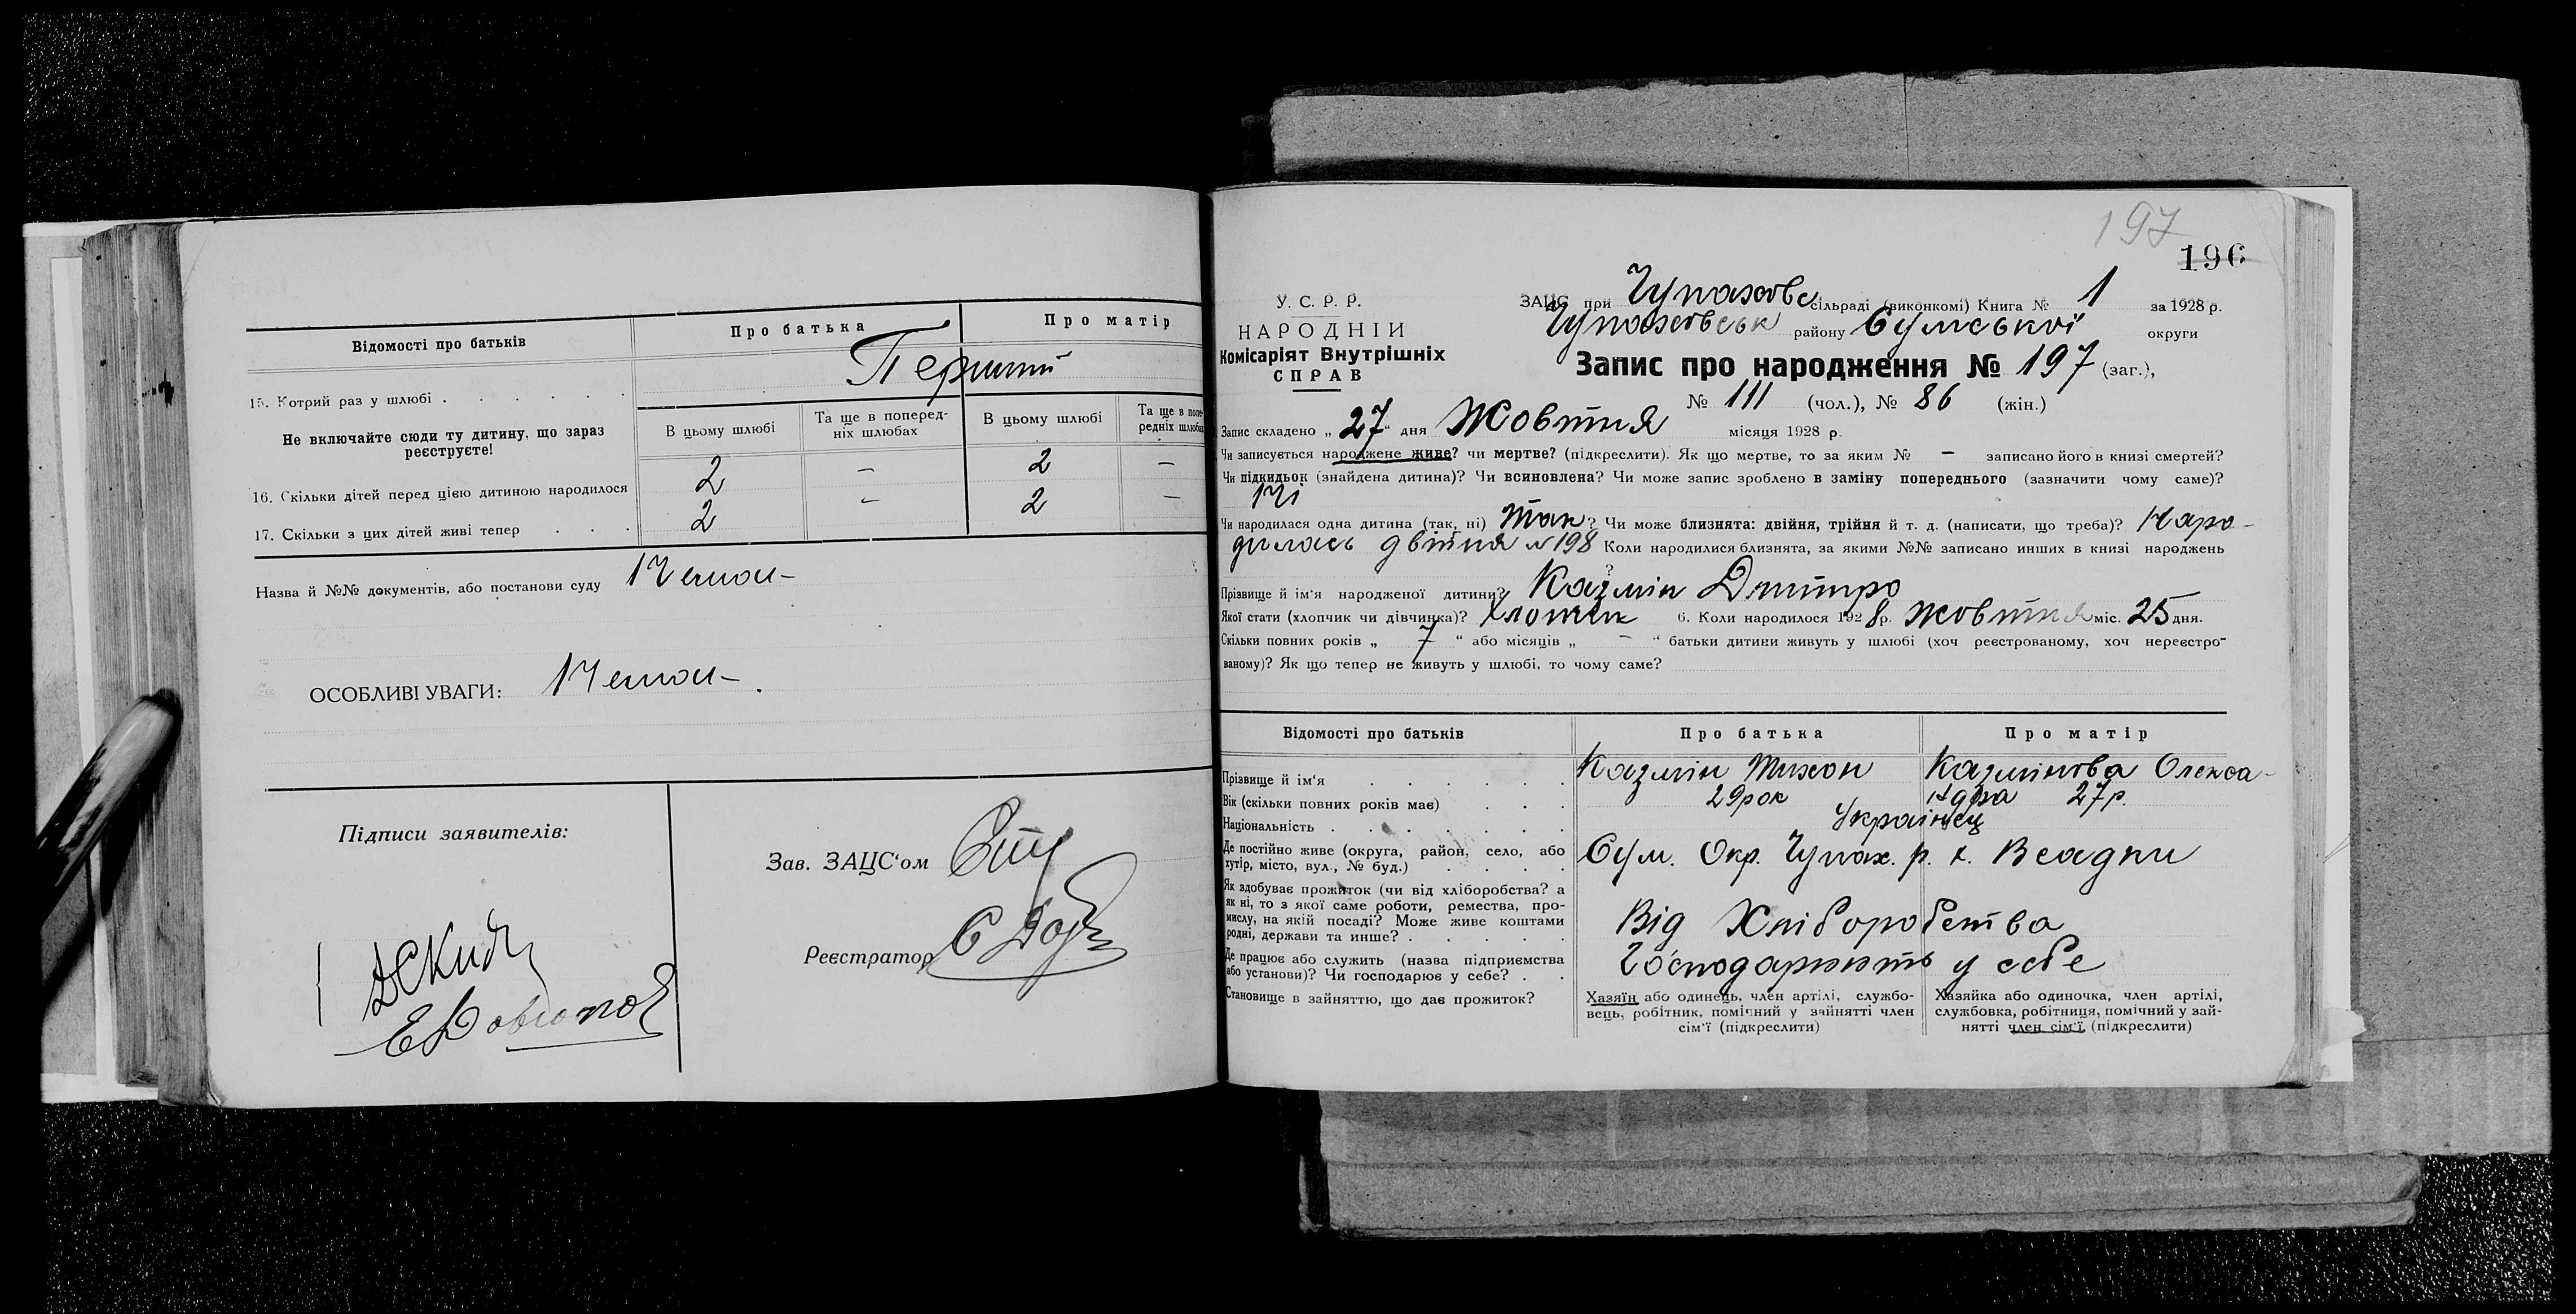 Відомості про батьків
Про батька
Про матір
15. Котрий раз у шлюбі . . . . . .
Перший
Не включайте сюди ту дитину, що зараз реєструєте!
В цьому шлюбі
Та ще в поперед-
ніх шлюбах
В цьому шлюбі
Та ще в попе-
редніх шлюбах
16. Скільки дітей перед цією дитиною народилося
2 — 2 —
17. Скільки з цих дітей живі тепер . . .
2 — 2 —
Назва й №№ документів, або постанови суду Немає
ОСОБЛИВІ УВАГИ: Немає
Підписи заявителів:
Зав. ЗАЦС'ом
Реєстратор
197
196
У. С. Р. Р.
НАРОДНІЙ
Комісаріят Внутрішніх
СПРАВ
ЗАЦС при Чупахове сільраді (виконкомі) Книга № 1 за 1928 р.
Чупаховськ району Сумської округи
Запис про народження № 197 (заг.),
№ 111 (чол.), № 86 (жін.)
Запис складено „27" дня Жовтня місяця 1928 р.
Чи записується народжене живе? чи мертве? (підкреслити). Як що мертве, то за яким № — записано його в книзі смертей?
Чи підкидьок (знайдена дитина)? Чи всиновлена? Чи може запис зроблено в заміну попереднього (зазначити чому саме)?
Ні
Чи народилася одна дитина (так, ні) Так? Чи може близнята: двійня, трійня й т. д. (написати, що треба)? Наро-
дилась двійня № 198 Коли народилися близнята, за якими №№ записано инших в книзі народжень
?
Прізвище й ім'я народженої дитини? Казмін Дмитро
Якої стати (хлопчик чи дівчинка)? Хлопчик 6. Коли народилося 1928р. жовтня міс. 25 дня.
Скільки повних років „ 7 " або місяців „ — " батьки дитини живуть у шлюбі (хоч реєстрованому, хоч нереєстро-
ваному)? Як що тепер не живуть у шлюбі, то чому саме?
Відомості про батьків
Про батька
Про матір
Прізвище й ім'я . . . . . .
Казмін Тихон
Казмінова Олекса-
ндра 27р.
Вік (скільки повних років має) . . .
29рок
Національність . . . . . . .
Українец
Де постійно живе (округа, район, село, або
хутір, місто, вул., № буд.) . . . .
Сум. Окр. Чупах. р. х. Всадки
Як здобуває прожиток (чи від хліборобства? а
як ні, то з якої саме роботи, ремества, про-
мислу, на якій посаді? Може живе коштами
родні, держави та инше? . . . . .
Від Хліборобства
Де працює або служить (назва підприємства
або установи)? Чи господарює у себе? . .
Господарюють у себе
Становище в зайняттю, що дає прожиток?
Хазяїн або одинець, член артілі, службо-
вець, робітник, помічний у зайнятті член
сім'ї (підкреслити)
Хазяйка або одиночка, член артілі,
службовка, робітниця, помічний у зай-
нятті член сім'ї (підкреслити)